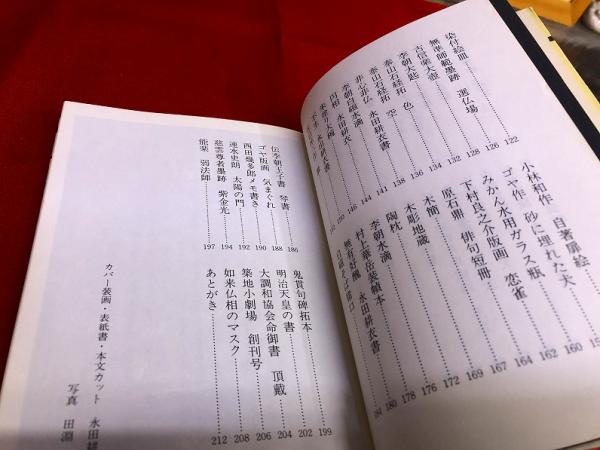 染付絵皿 122
無準師範墨跡 選仏場 126
古信楽大壺 128
李朝大匙 132
泰山石経拓 空 134
泰山石経拓 色 138
非心非仏 永田耕衣書 141
李朝白磁水滴
円相 永田耕衣
小林和作 自著扉絵
ゴヤ作 砂に埋れた犬 160
みかん水用ガラス瓶 162
下村良之介版画 恋雀 164
原石鼎 俳句短冊 167
木簡 169
木彫地蔵 172
陶枕 176
李朝水滴 178
村上華岳装幀本 180
無有好醜 永田耕衣書 184
伝李朝王子書 琴書 186
ゴヤ版画 気まぐれ 188
西田幾多郎メモ書き 190
速水史朗 太陽の門 192
慈雲尊者墨跡 紫金光 194
能楽 弱法師 197
鬼貫句碑拓本 199
明治天皇の書 202
大調和協会命御書 頂戴 204
築地小劇場 創刊号 206
如来仏相のマスク 208
あとがき 212
カバー装画・表紙書・本文カット 永田
写真 田淵